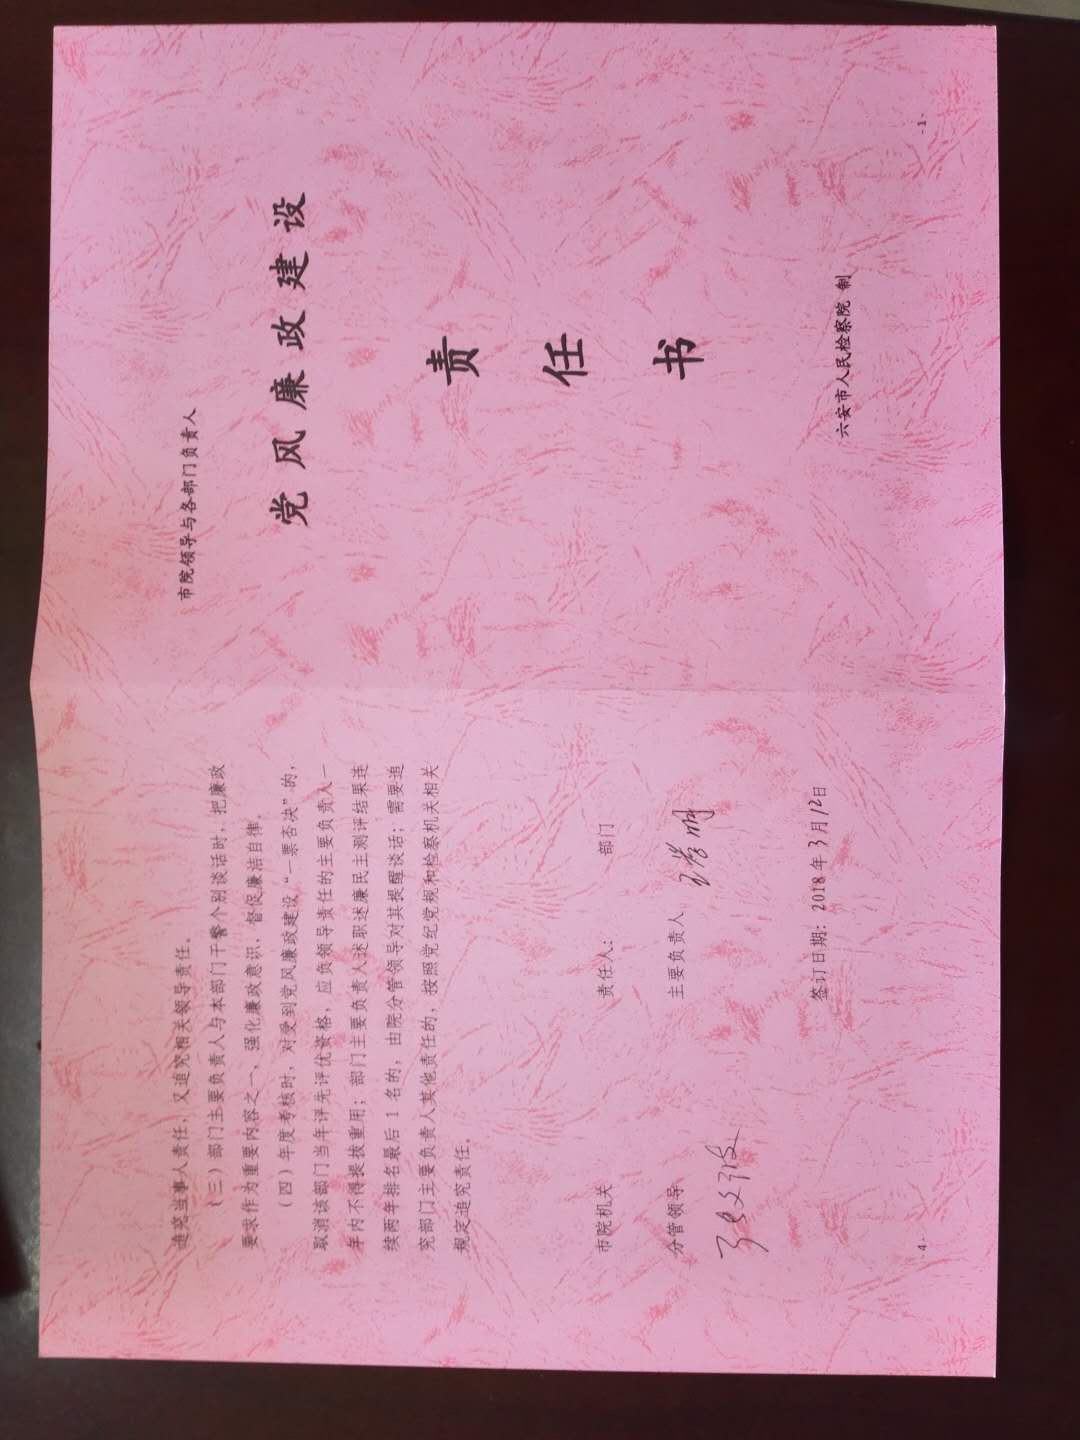 追究当事人责任，又追究相关领导责任。
（三）部门主要负责人与本部门干警个别谈话时，把廉政
要求作为重要内容之一，强化廉政意识，督促廉洁自律。
（四）年度考核时，对受到党风廉政建设“一票否决”的，
取消该部门当年评先评优资格，应负领导责任的主要负责人一
年内不得提拔重用；部门主要负责人述职述廉民主测评结果连
续两年排名最后1名的，由院分管领导对其提醒谈话；需要追
究部门主要负责人其他责任的，按照党纪党规和检察机关相关
规定追究责任。
市院机关 责任人： 部门
分管领导 主要负责人
签订日期：2018年3月12日
-4-
市院领导与各部门负责人
党风廉政建设
责
任
书
六安市人民检察院 制
-1-